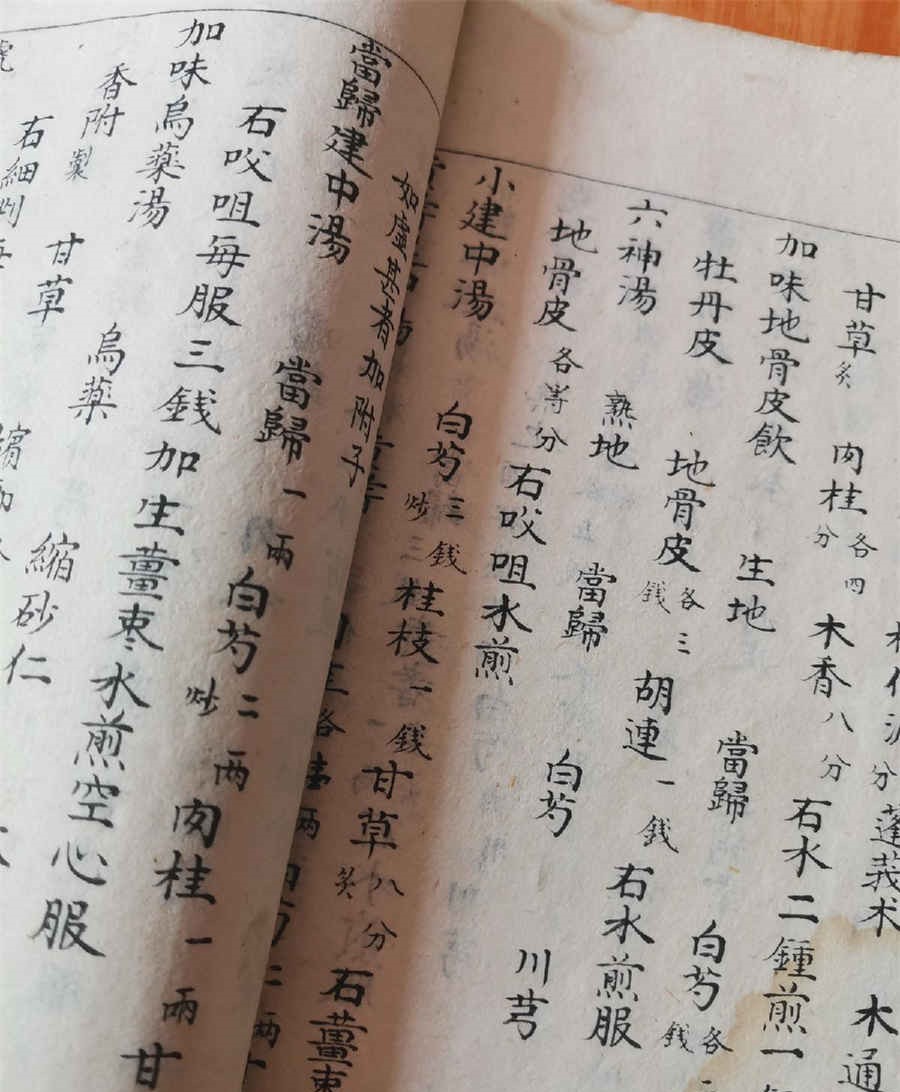 分蓬莪术 木通
甘草炙 肉桂各四分 木香八分 石水二鍾煎一
加味地骨皮飲 生地 當歸 白芍各錢
牡丹皮 地骨皮各三錢 胡連一錢 右水煎服
六神湯 熟地 當歸 白芍 川芎
地骨皮各等分 右咬咀水煎
小建中湯 白芍炒三錢 桂枝一錢 甘草炙八分 石薑棗
如虛甚者加附子
當歸建中湯 當歸一兩 白芍炒二兩 肉桂一兩 甘
石咬咀每服三錢加生薑棗水煎空心服
加味烏藥湯 烏藥 縮砂仁
香附製 甘草
右細剉每